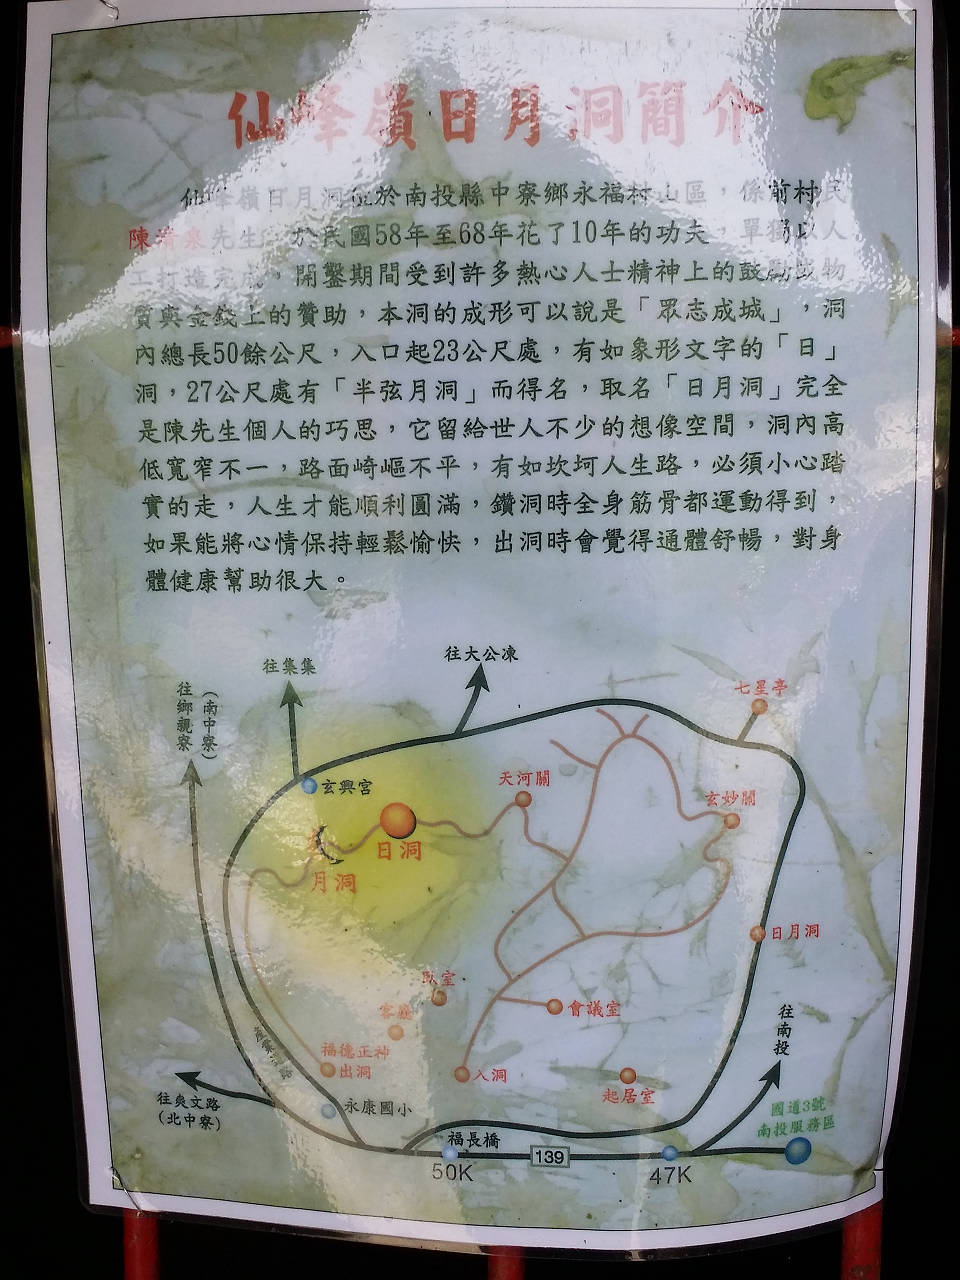 仙峰嶺日月洞簡介
仙峰嶺日月洞位於南投縣中寮鄉永福村山區，係前村民
陳清泉先生 於民國58年至68年花了10年的功夫，單獨以人
工打造完成，開鑿期間受到許多熱心人士精神上的鼓勵 物
質與金錢上的贊助，本洞的成形可以說是「眾志成城」，洞
內總長50餘公尺，入口起23公尺處，有如象形文字的「日」
洞，27公尺處有「半弦月洞」而得名，取名「日月洞」完全
是陳先生個人的巧思，它留給世人不少的想像空間，洞內高
低寬窄不一，路面崎嶇不平，有如坎坷人生路，必須小心踏
實的走，人生才能順利圓滿，鑽洞時全身筋骨都運動得到，
如果能將心情保持輕鬆愉快，出洞時會覺得通體舒暢，對身
體健康幫助很大。
往大公凍
往集集
往鄉親寮
(南中寮)
七星亭
玄興宮
天河關
玄妙關
日洞
月洞
日月洞
臥室
客廳
會議室
往南投
福德正神
出洞
入洞
起居室
永康國小
往爽文路
(北中寮)
國道3號
南投服務區
福長橋
139
50K
47K